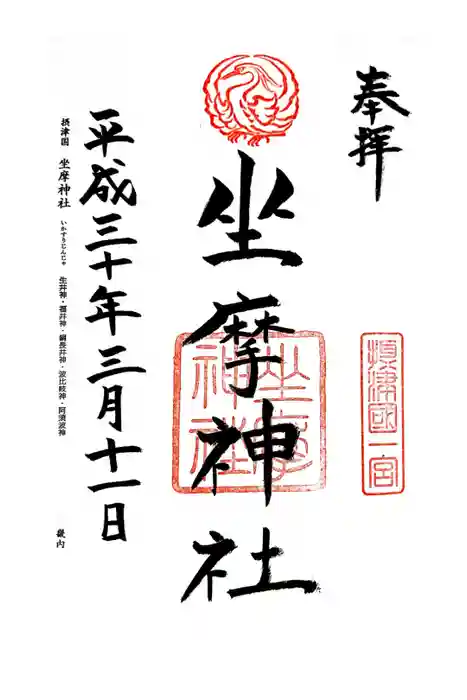 奉拝
摂津國一宮
坐摩神社
坐摩神社
平成三十年三月十一日
摂津国 坐摩神社 いかすりじんじゃ 生井神・福井神・綱長井神・波比岐神・阿須波神 畿内